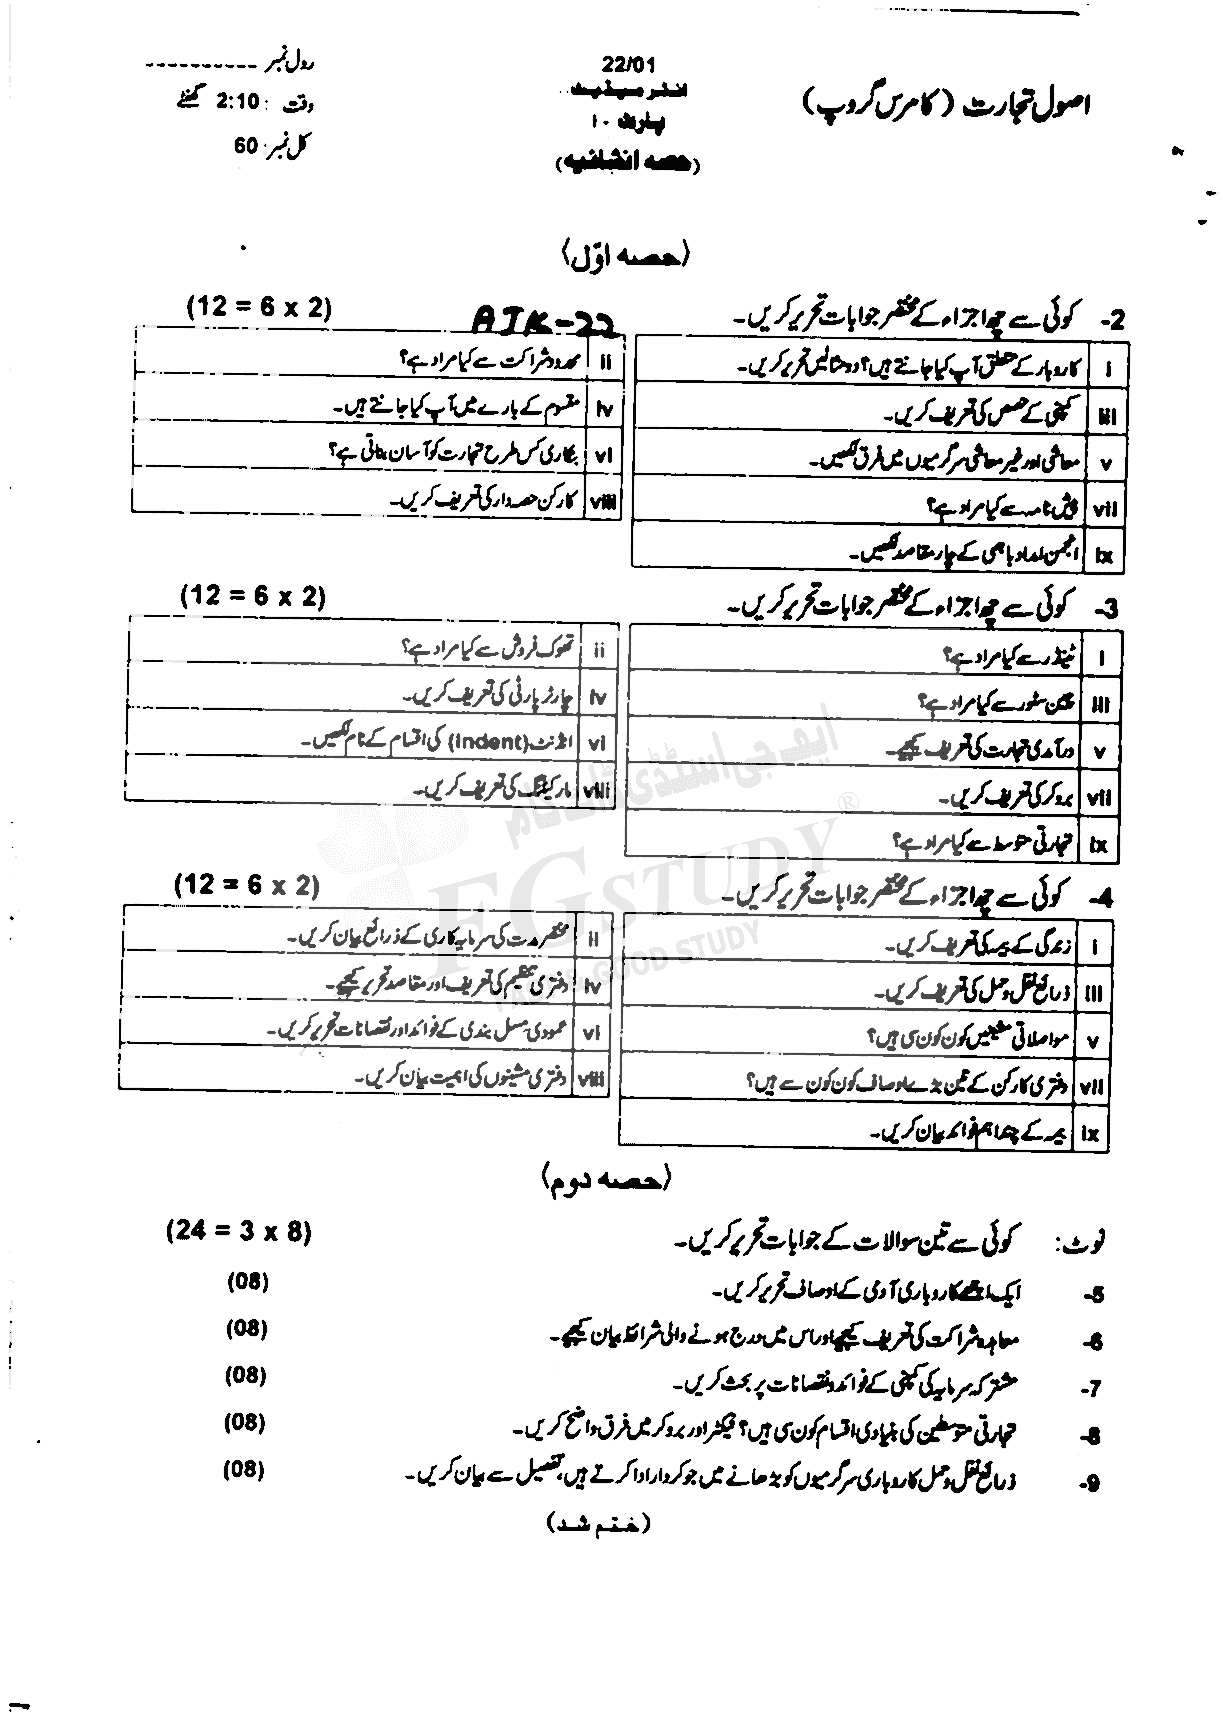 اصول تجارت (کامرس گروپ)
22/01
انٹرمیڈیٹ
پارٹ ۔ ۱
(حصہ انشائیہ)
رول نمبر ----------
وقت : 2:10 گھنٹے
کل نمبر: 60
(حصہ اوّل)
2- کوئی سے چھ اجزاء کے مختصر جوابات تحریر کریں۔ (12 = 6 x 2)
AJK-22
i کاروبار کے متعلق آپ کیا جانتے ہیں؟ دو مثالیں تحریر کریں۔
ii محدود شراکت سے کیا مراد ہے؟
iii کمپنی کے حصص کی تعریف کریں۔
iv مقسوم کے بارے میں آپ کیا جانتے ہیں۔
v معاشی اور غیر معاشی سرگرمیوں میں فرق لکھیں۔
vi بنکاری کس طرح تجارت کو آسان بناتی ہے؟
vii پیش نامہ سے کیا مراد ہے؟
viii کارکن حصہ دار کی تعریف کریں۔
ix انجمن امداد باہمی کے چار مقاصد لکھیں۔
3- کوئی سے چھ اجزاء کے مختصر جوابات تحریر کریں۔ (12 = 6 x 2)
i ٹینڈر سے کیا مراد ہے؟
ii تھوک فروش سے کیا مراد ہے؟
iii چین سٹور سے کیا مراد ہے؟
iv چارٹر پارٹی کی تعریف کریں۔
v درآمدی تجارت کی تعریف کیجیے۔
vi انڈنٹ (Indent) کی اقسام کے نام لکھیں۔
vii بروکر کی تعریف کریں۔
viii مارکیٹنگ کی تعریف کریں۔
ix تجارتی متوسط سے کیا مراد ہے؟
ایف جی اسٹڈی ڈاٹ کام
FG STUDY ®
GOOD STUDY
4- کوئی سے چھ اجزاء کے مختصر جوابات تحریر کریں۔ (12 = 6 x 2)
i زندگی کے بیمہ کی تعریف کریں۔
ii مختصر مدت کی سرمایہ کاری کے ذرائع بیان کریں۔
iii ذرائع نقل و حمل کی تعریف کریں۔
iv دفتری تنظیم کی تعریف اور مقاصد تحریر کیجیے۔
v مواصلاتی مشینیں کون کون سی ہیں؟
vi عمودی مسل بندی کے فوائد اور نقصانات تحریر کریں۔
vii دفتری کارکن کے تین بڑے اوصاف کون کون سے ہیں؟
viii دفتری مشینوں کی اہمیت بیان کریں۔
ix بیمہ کے چند اہم فوائد بیان کریں۔
(حصہ دوم)
نوٹ: کوئی سے تین سوالات کے جوابات تحریر کریں۔ (24 = 3 x 8)
5- ایک اچھے کاروباری آدمی کے اوصاف تحریر کریں۔ (08)
6- معاہدہ شراکت کی تعریف کیجیے اور اس میں درج ہونے والی شرائط بیان کیجیے۔ (08)
7- مشترکہ سرمایہ کی کمپنی کے فوائد و نقصانات پر بحث کریں۔ (08)
8- تجارتی متوسطین کی بنیادی اقسام کون سی ہیں؟ فیکٹر اور بروکر میں فرق واضح کریں۔ (08)
9- ذرائع نقل و حمل کاروباری سرگرمیوں کو بڑھانے میں جو کردار ادا کرتے ہیں، تفصیل سے بیان کریں۔ (08)
(ختم شد)